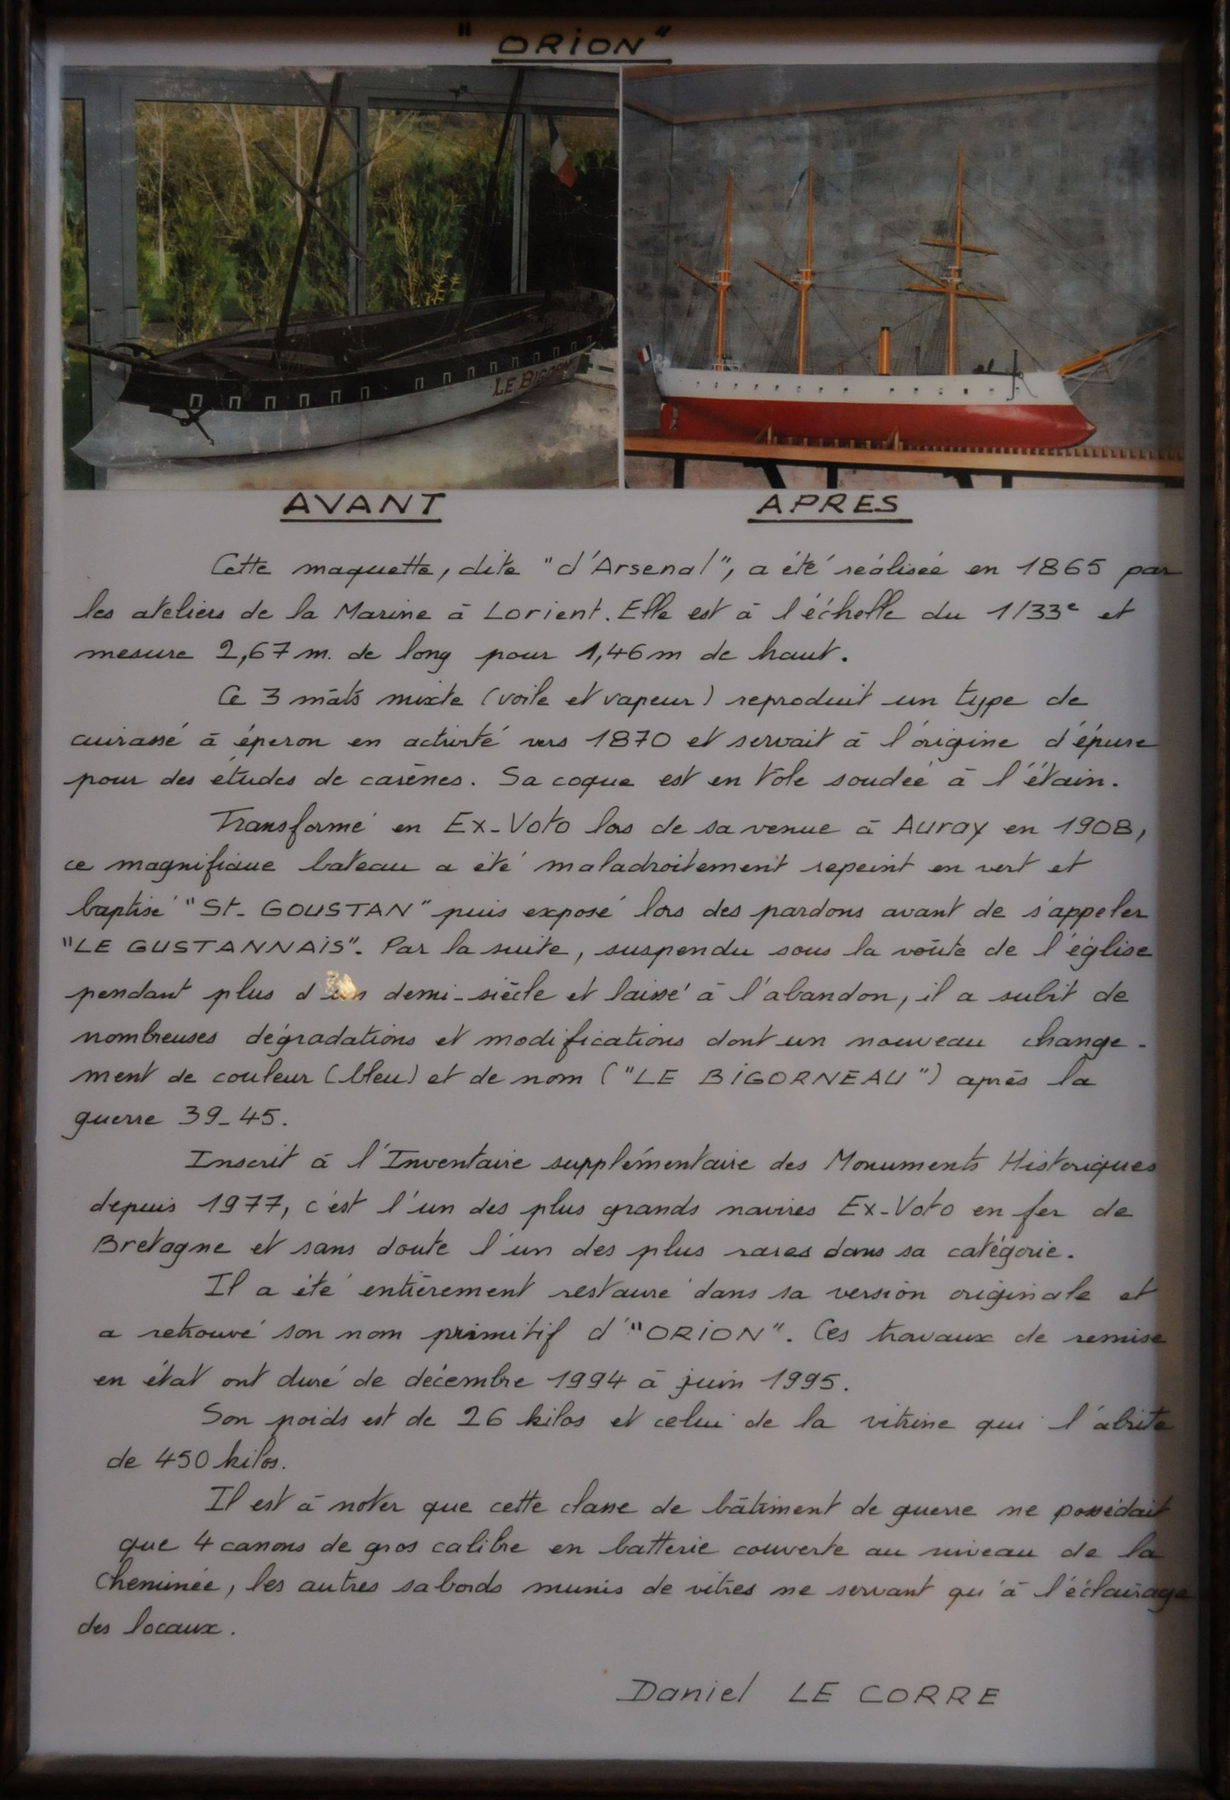 "ORiON"
LE BIGOR
AVANT
APRES
Cette maquette, dite "d'Arsenal", a été réalisée en 1865 par
les ateliers de la Marine à Lorient. Elle est à l'échelle du 1/33e et
mesure 2,67 m. de long pour 1,46 m de haut.
Ce 3 mâts mixte (voile et vapeur) reproduit un type de
cuirassé à éperon en activité vers 1870 et servait à l'origine d'épure
pour des études de carènes. Sa coque est en tôle soudée à l'étain.
Transformé en Ex-Voto lors de sa venue à Auray en 1908,
ce magnifique bateau a été maladroitement repeint en vert et
baptisé "St- GOUSTAN" puis exposé lors des pardons avant de s'appeler
"LE GUSTANNAiS". Par la suite, suspendu sous la voûte de l'église
pendant plus d'un demi-siècle et laissé à l'abandon, il a subit de
nombreuses dégradations et modifications dont un nouveau change-
ment de couleur (bleu) et de nom ("LE BiGORNEAU") après la
guerre 39-45.
Inscrit à l'Inventaire supplémentaire des Monuments Historiques
depuis 1977, c'est l'un des plus grands navires Ex-Voto en fer de
Bretagne et sans doute l'un des plus rares dans sa catégorie.
Il a été entièrement restauré dans sa version originale et
a retrouvé son nom primitif d'"ORiON". Ces travaux de remise
en état ont duré de décembre 1994 à juin 1995.
Son poids est de 26 kilos et celui de la vitrine qui l'abrite
de 450 kilos.
Il est à noter que cette classe de bâtiment de guerre ne possédait
que 4 canons de gros calibre en batterie couverte au niveau de la
cheminée, les autres sabords munis de vitres ne servant qu'à l'éclairage
des locaux.
Daniel LE CORRE